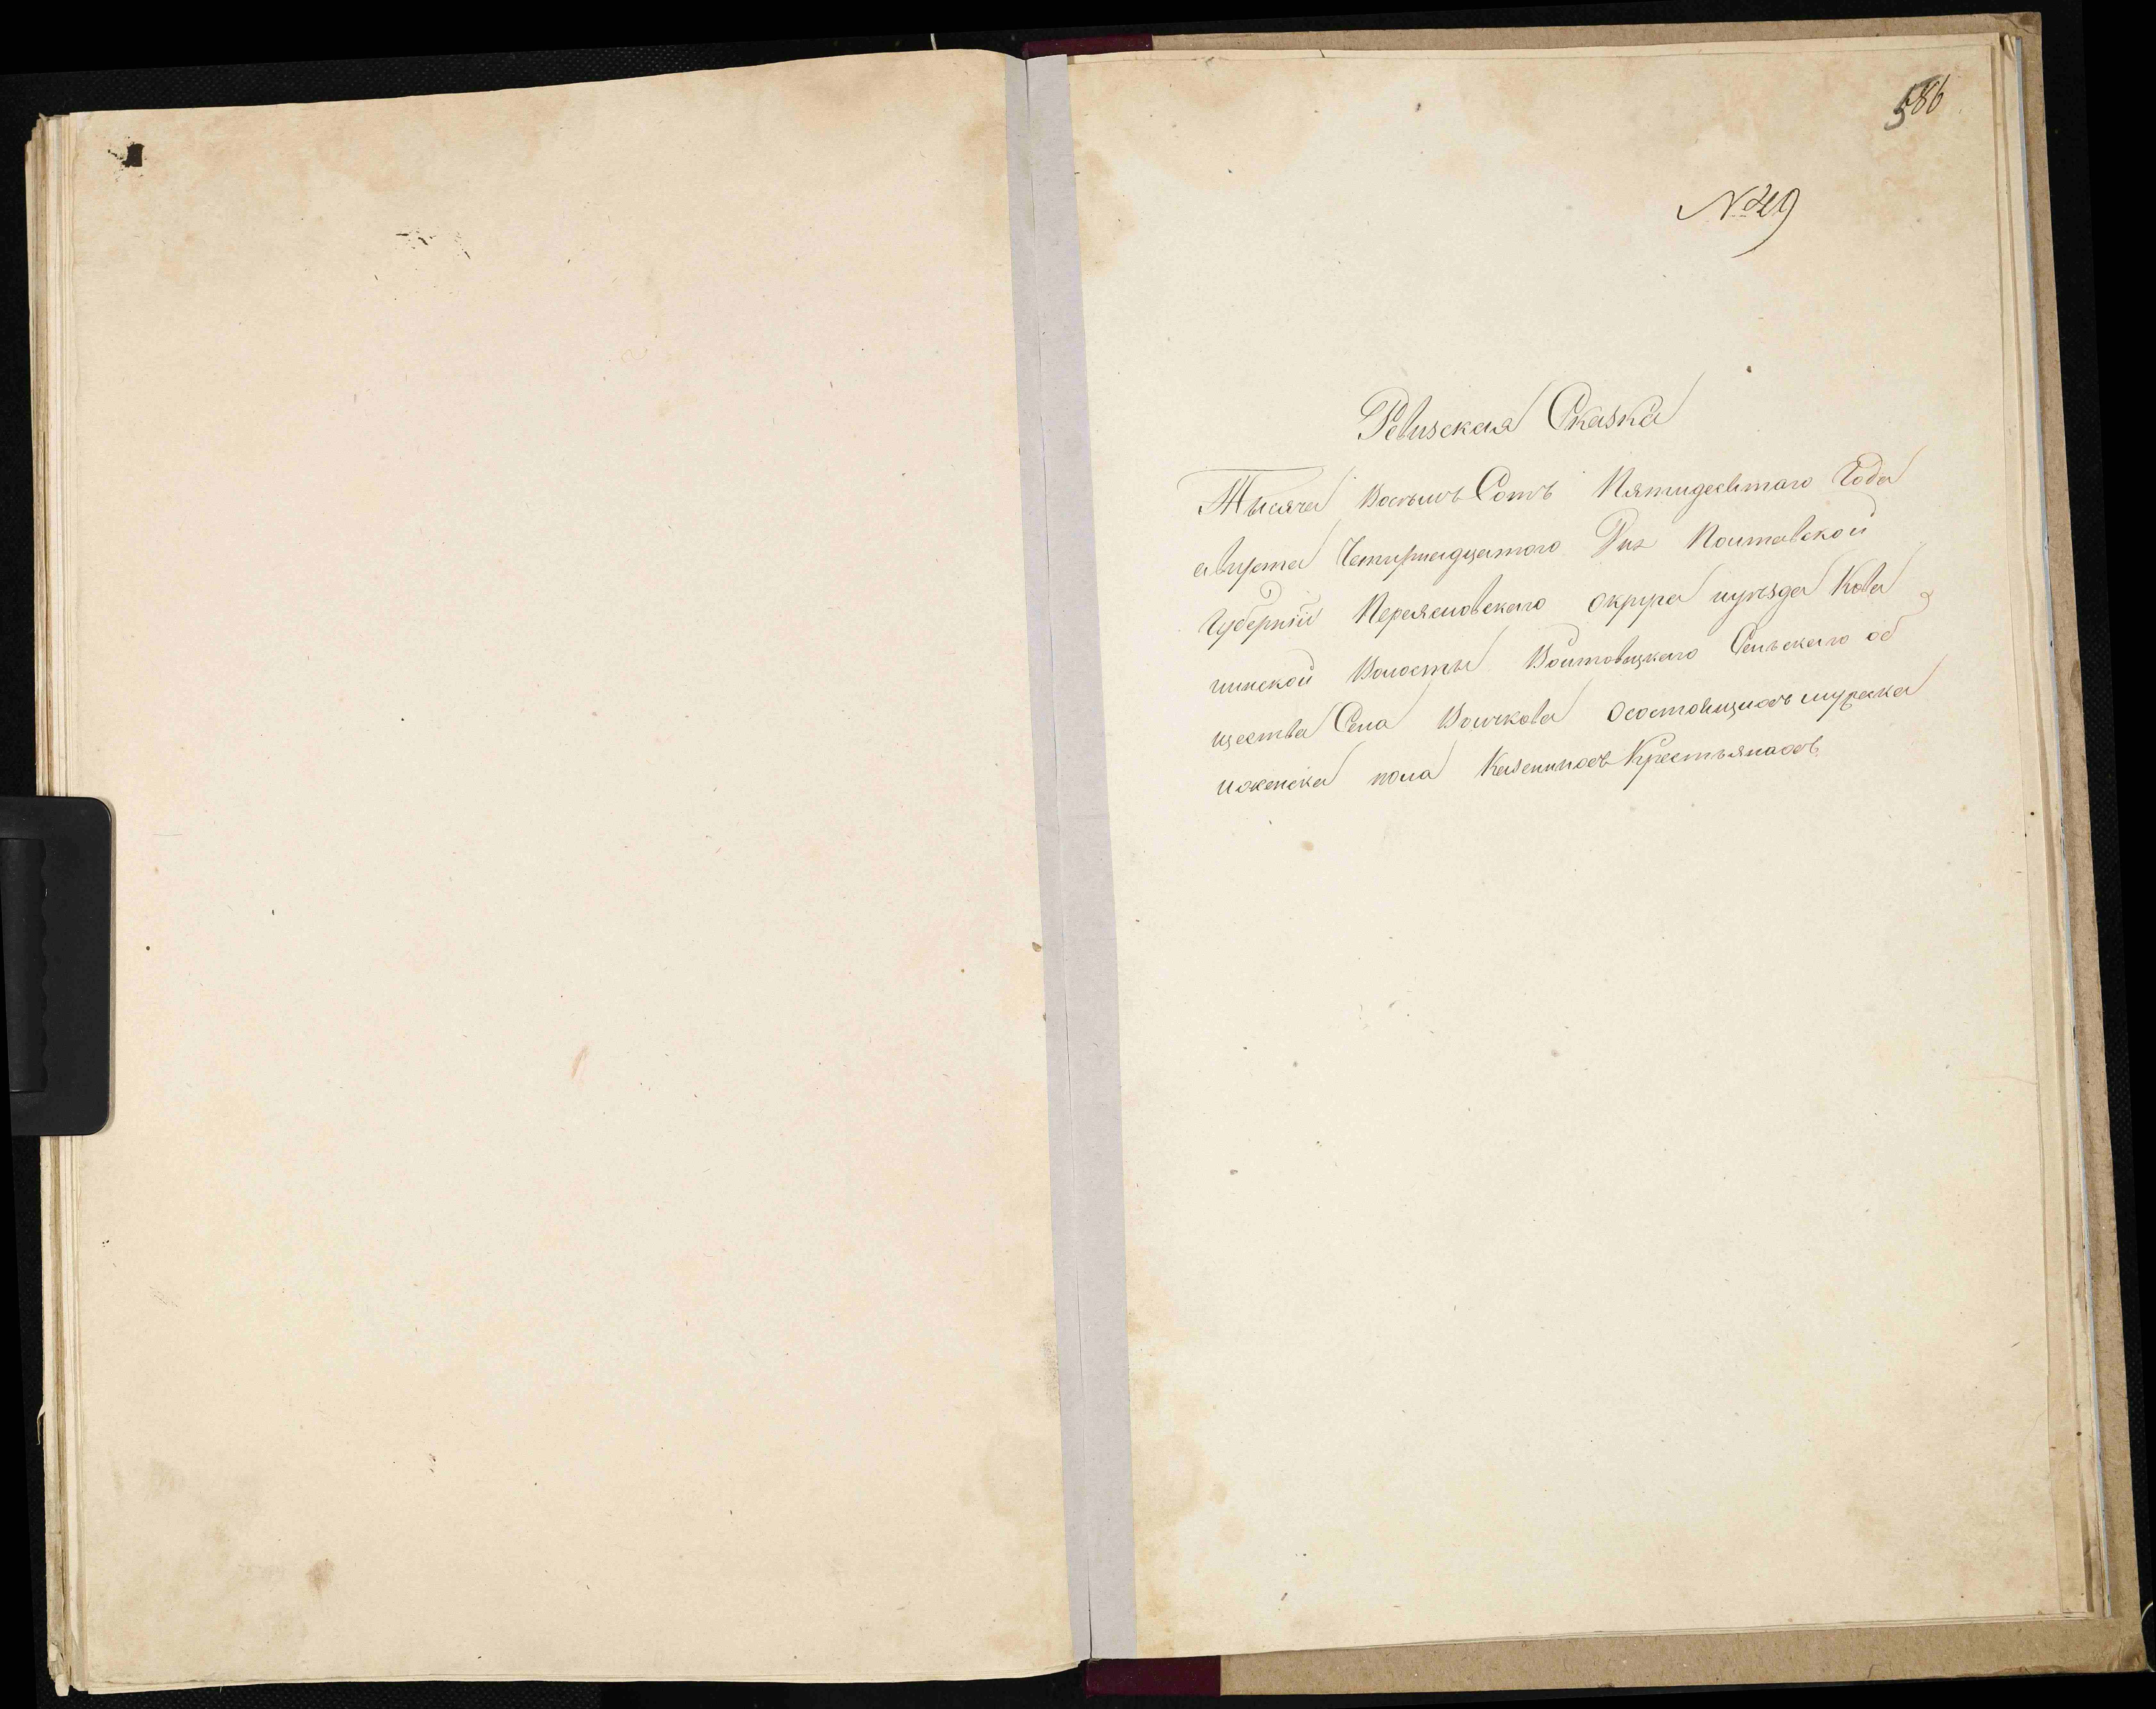 586
№ 29
Ревизская Сказка
Тысяча Восемь Сотъ Пятидесятого Года
августа Четырнадцатого Дня Полтавской
Губерніи Переясловского округа иуезда Кова
линской Волости Войтовецкого Сельского об
щества Села Волчкова осостоящихъ мужска
иженска пола Казенныхъ Крестьянахъ